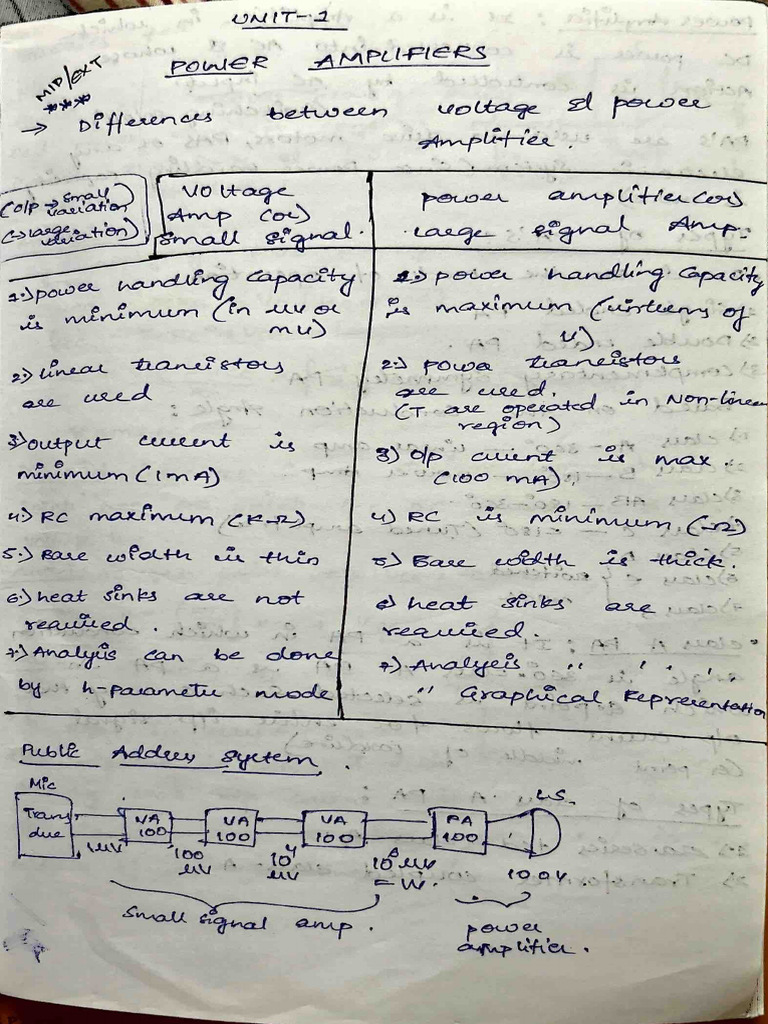 UNIT-1
POWER AMPLIFIERS
MID/EXT
***
→ Differences between voltage & power
Amplifier.
(O/p → small
variation
(→ large
variation)
Voltage
Amp (or)
small signal.
power amplifier (or)
Large signal Amp.
1.) power handling capacity
is minimum (in uv or
mv)
2.) linear transistors
are used
3) output current is
minimum (1mA)
4.) RC maximum (K-Ω).
5.) Base width is thin
6.) heat sinks are not
required.
7.) Analysis can be done
by h-parameter mode
1.) power handling capacity
is maximum (in terms of
v).
2.) power transistors
are used.
(T are operated in Non-linear
region)
3) O/p current is max.
(100 mA)
4) RC is minimum (-Ω)
5) Base width is thick.
6) heat sinks are
required.
7) Analysis " " " "
" Graphical Representation
Public Address System.
Mic
Trans
due
VA
100
VA
100
VA
100
PA
100
LS.
1uV
100
uV
10⁴
uV
10⁶ uV
= W.
100V
small signal amp.
power
amplifier.